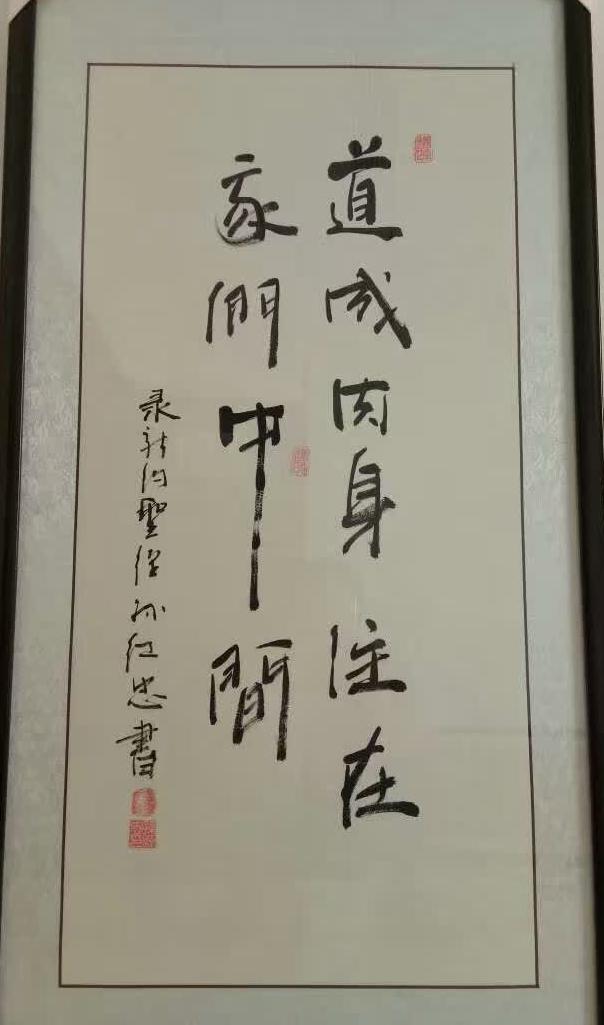 道成肉身住在
我們中間
录新约聖经孙红忠書